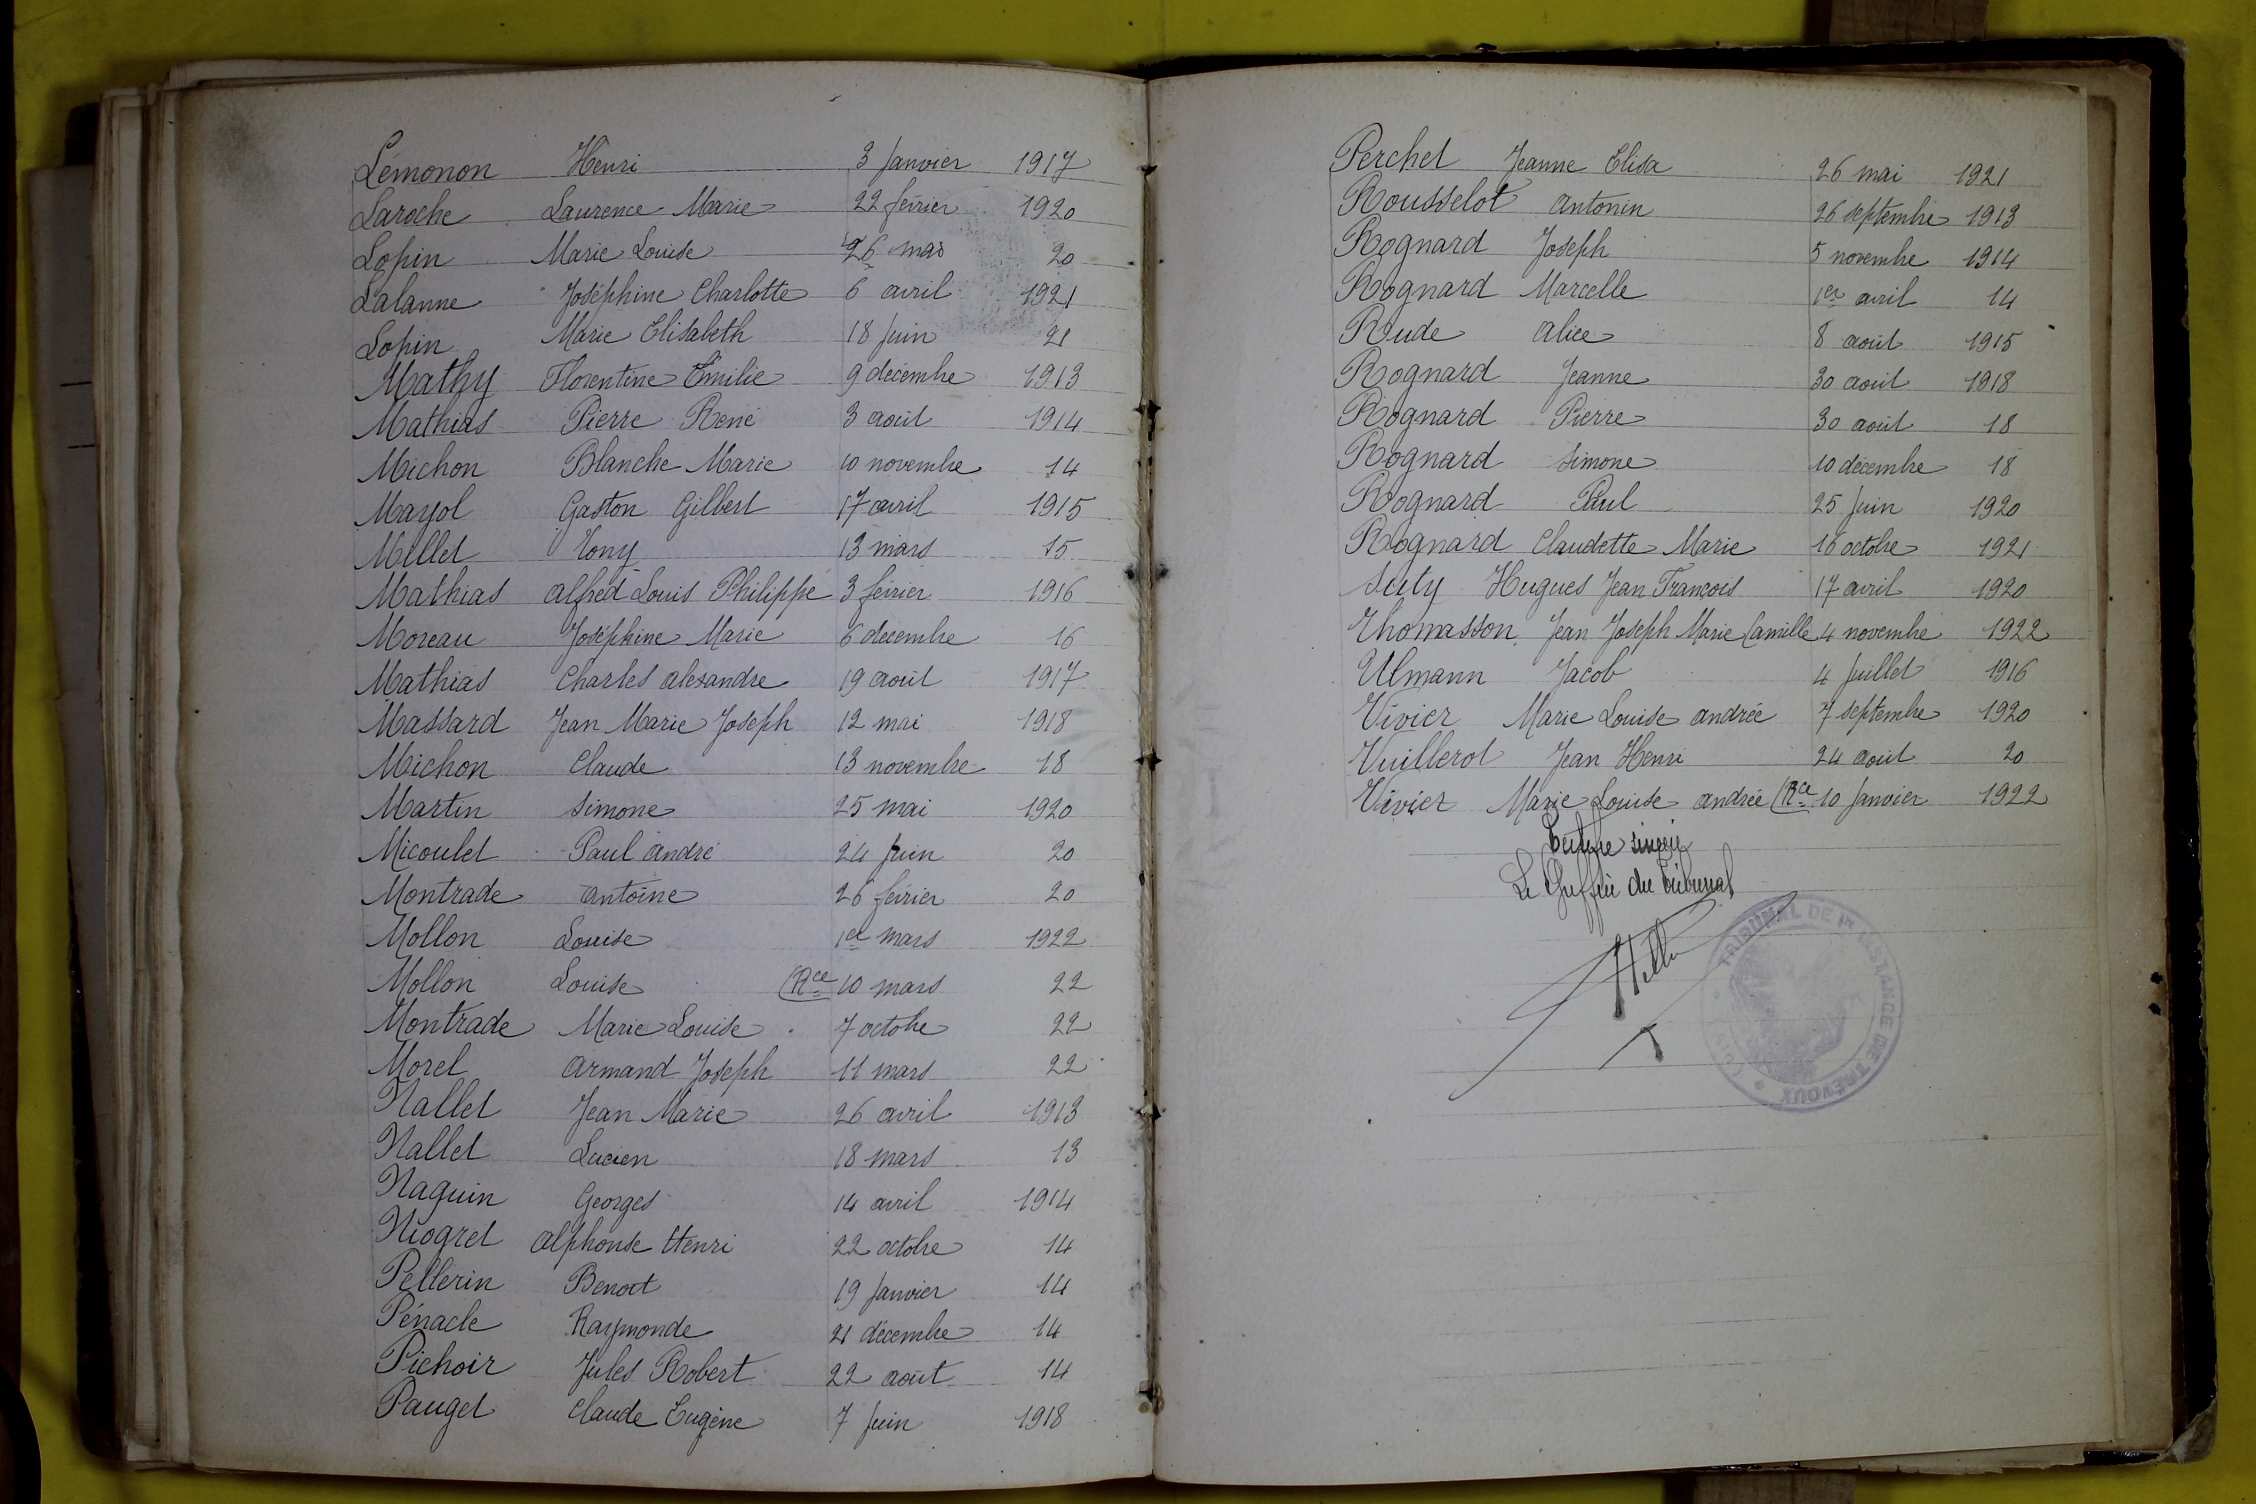 Lémonon Henri 3 Janvier 1917
Laroche Laurence Marie 22 février 1920
Lopin Marie Louise 26 mars 20
Lalanne Joséphine Charlotte 6 avril 1921
Lopin Marie Elisabeth 18 Juin 21
Mathy Florentine Emilie 9 décembre 1913
Mathias Pierre René 3 août 1914
Michon Blanche Marie 10 novembre 14
Mayol Gaston Gilbert 17 avril 1915
Millet Tony 13 mars 15
Mathias Alfred Louis Philippe 3 février 1916
Moreau Joséphine Marie 6 décembre 16
Mathias Charles Alexandre 19 août 1917
Massard Jean Marie Joseph 12 mai 1918
Michon Claude 13 novembre 18
Martin Simone 25 mai 1920
Micoulet Paul André 24 Juin 20
Montrade Antoine 26 février 20
Mollon Louise 1er mars 1922
Mollon Louise (Rce 10 mars 22
Montrade Marie Louise 7 octobre 22
Morel Armand Joseph 11 mars 22
Nallet Jean Marie 26 avril 1913
Nallet Lucien 18 mars 13
Naguin Georges 14 avril 1914
Niogret Alphonse Henri 22 octobre 14
Pellerin Benoît 19 Janvier 14
Pénacle Raymonde 21 décembre 14
Pichoir Jules Robert 22 août 14
Pauget Claude Eugène 7 Juin 1918
Perchet Jeanne Elisa 26 mai 1921
Rousselot Antonin 26 septembre 1913
Rognard Joseph 5 novembre 1914
Rognard Marcelle 1er avril 14
Rude Alice 8 août 1915
Rognard Jeanne 30 août 1918
Rognard Pierre 30 août 18
Rognard Simone 10 décembre 18
Rognard Paul 25 Juin 1920
Rognard Claudette Marie 16 octobre 1921
Suty Hugues Jean François 17 avril 1920
Thomasson Jean Joseph Marie Camille 4 novembre 1922
Ulmann Jacob 4 Juillet 1916
Vivier Marie Louise Andrée 7 septembre 1920
Vuillerot Jean Henri 24 août 20
Vivier Marie Louise Andrée (Rce 10 Janvier 1922
Certifié sincère
Le Greffier du Tribunal
TRIBUNAL DE 1re INSTANCE DE TRÉVOUX